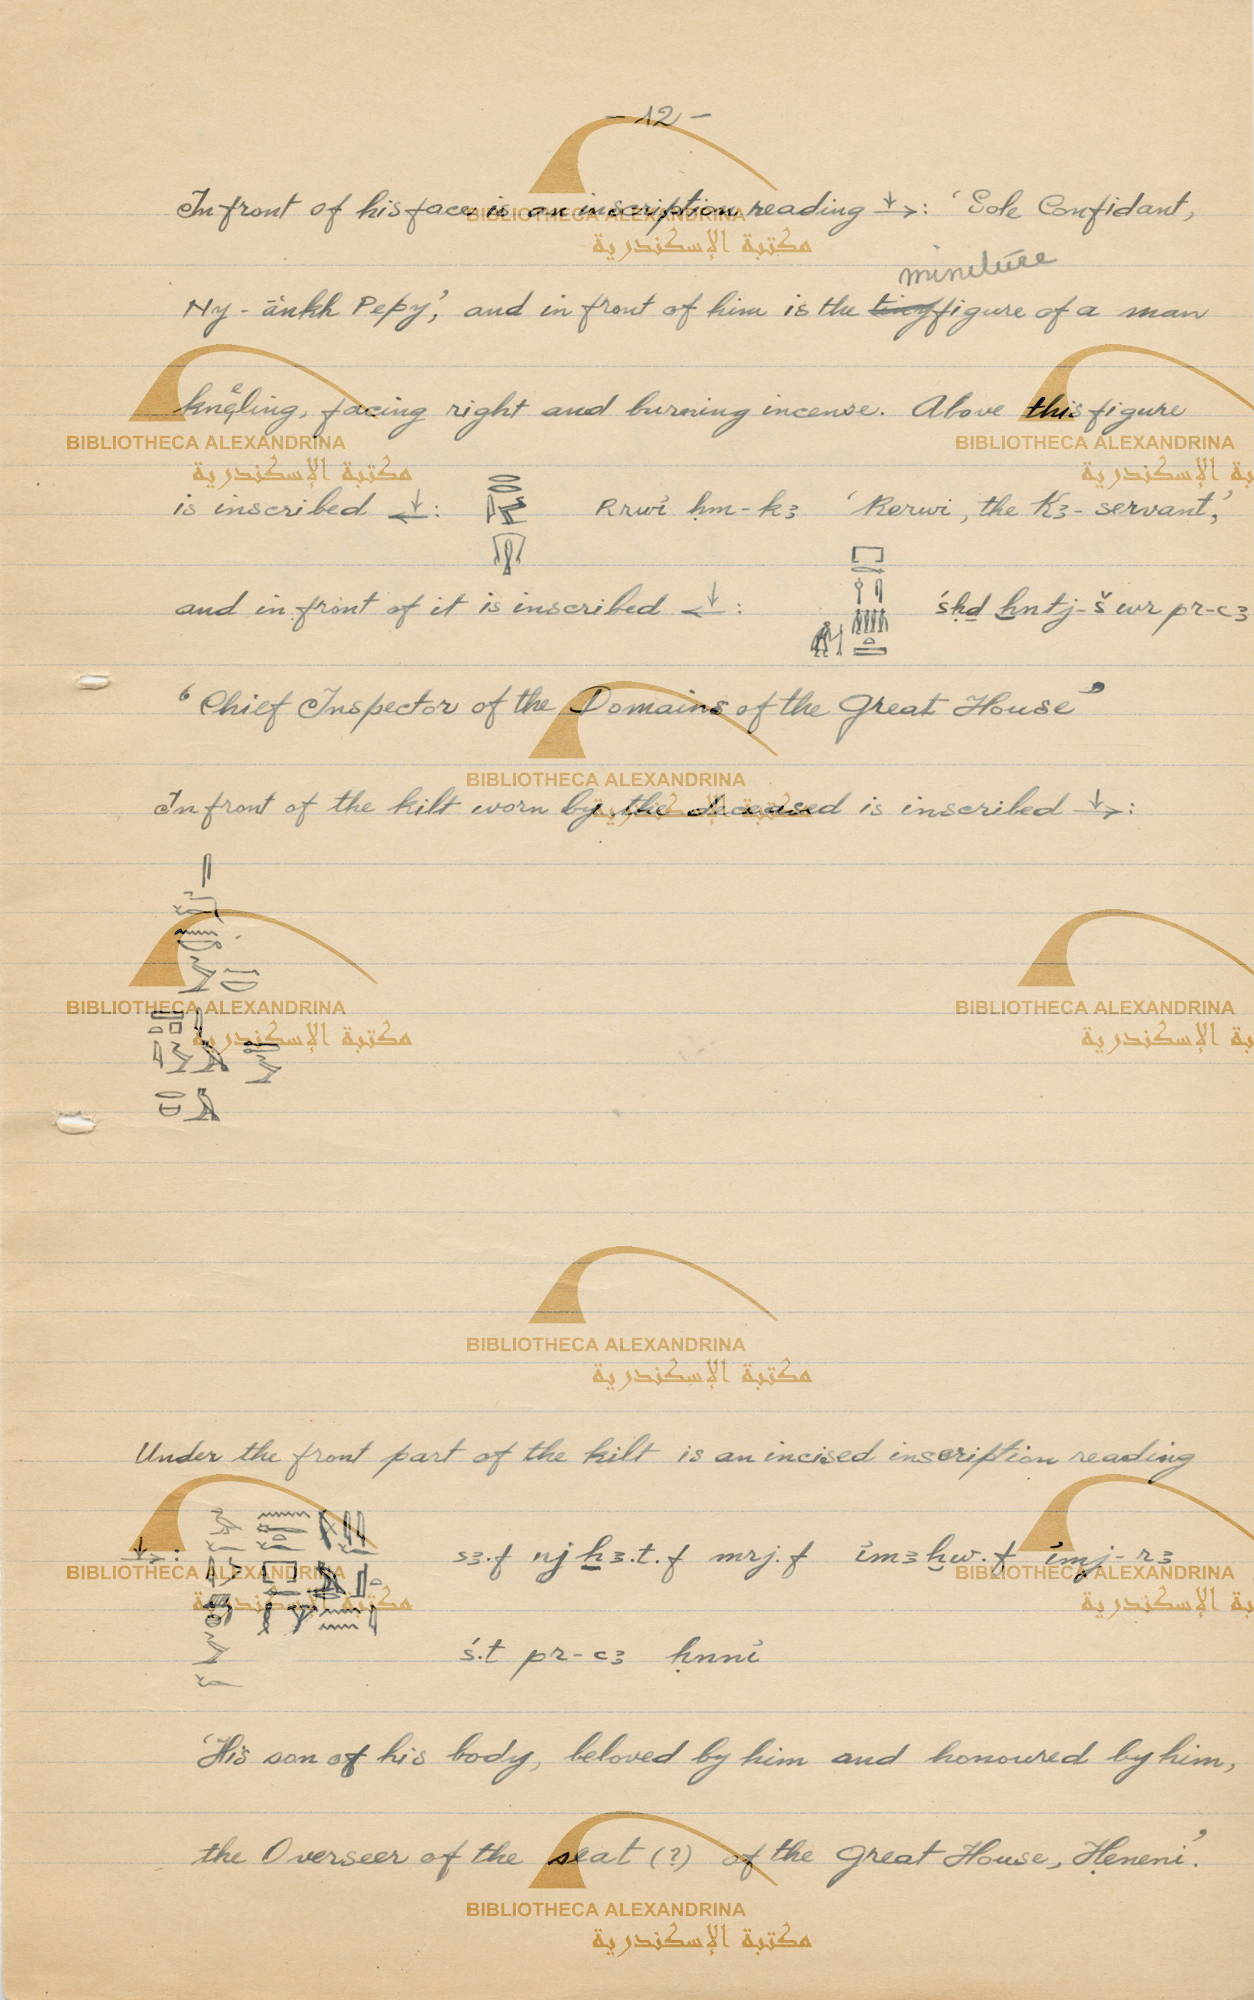 - 12 -
In front of his face is an inscription reading ↓→: 'Sole Confidant,
miniture
Ny-ānkh Pepy', and in front of him is the tiny figure of a man
kneeling, facing right and burning incense. Above this figure
is inscribed ←↓: Rrwỉ ḥm-kꜣ 'Rerwi, the Kꜣ-servant',
and in front of it is inscribed ←↓: śḥḏ ḫntj-š wr pr-ꜥꜣ
'Chief Inspector of the Domains of the Great House'
In front of the kilt worn by the deceased is inscribed ↓→:
Under the front part of the kilt is an incised inscription reading
↓→: sꜣ.f nj ẖꜣ.t.f mrj.f ỉmꜣḫw.f ỉmj-rꜣ
ś.t pr-ꜥꜣ ḥnnỉ
'His son of his body, beloved by him and honoured by him,
the Overseer of the seat (?) of the Great House, Ḥeneni'.
BIBLIOTHECA ALEXANDRINA
مكتبة الإسكندرية